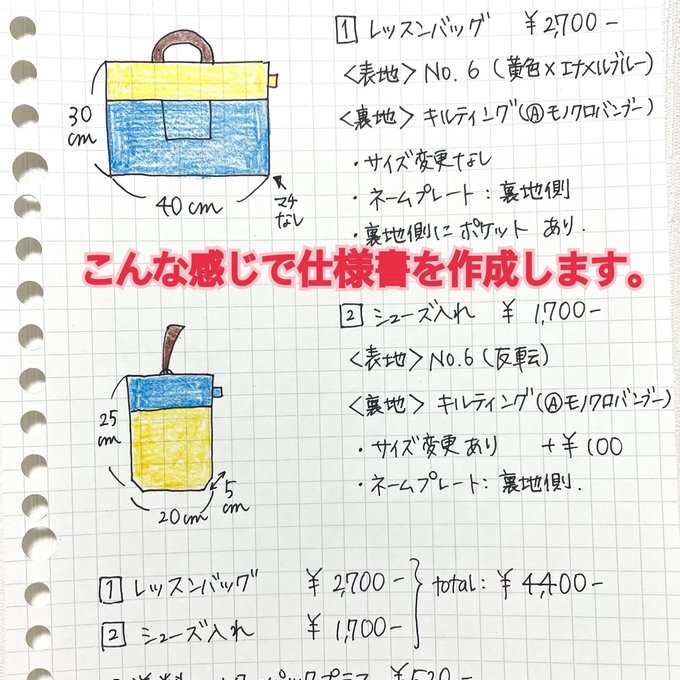 1 レッスンバッグ ¥2,700-
<表地> No.6 (黄色×エナメルブルー)
<裏地> キルティング(Ⓐモノクロバンブー)
・サイズ変更なし
・ネームプレート：裏地側
・裏地側にポケット あり.
30
cm
40cm
マチ
なし
こんな感じで仕様書を作成します。
2 シューズ入れ ¥1,700-
<表地> No.6 (反転)
<裏地> キルティング(Ⓐモノクロバンブー)
・サイズ変更あり +¥100
・ネームプレート：裏地側.
25
cm
20cm
5
cm
1 レッスンバッグ ¥2,700-
2 シューズ入れ ¥1,700-
total: ¥4,400-
¥520-